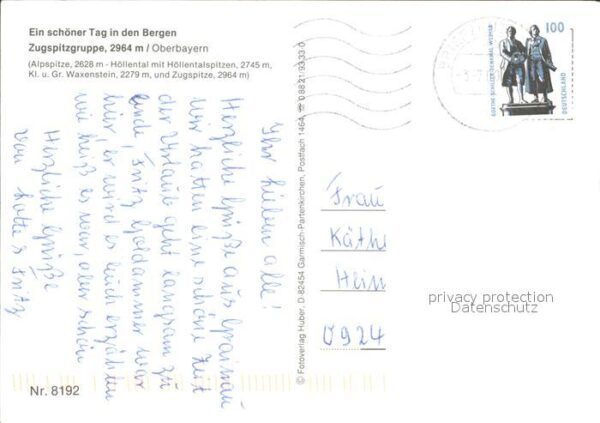 Ein schöner Tag in den Bergen
Zugspitzgruppe, 2964 m / Oberbayern
(Alpspitze, 2628 m - Höllental mit Höllentalspitzen, 2745 m,
Kl. u. Gr. Waxenstein, 2279 m, und Zugspitze, 2964 m)
Ihr lieben alle!
Herzliche Grüße aus Grainau
Wir hatten eine schöne Zeit
der Urlaub geht langsam zu
ende, Fritz Goldammer war
hier, er wird es euch erzählen
wie heiß es war, aber schön
Herzliche Grüße
von Lotte & Fritz
Nr. 8192
© Fotoverlag Huber, D-82454 Garmisch-Partenkirchen, Postfach 1464, ☎ 08821/9333-0
100
GOETHE-SCHILLER-DENKMAL WEIMAR
DEUTSCHLAND
Frau
Käthe
Hein
0924
privacy protection
Datenschutz